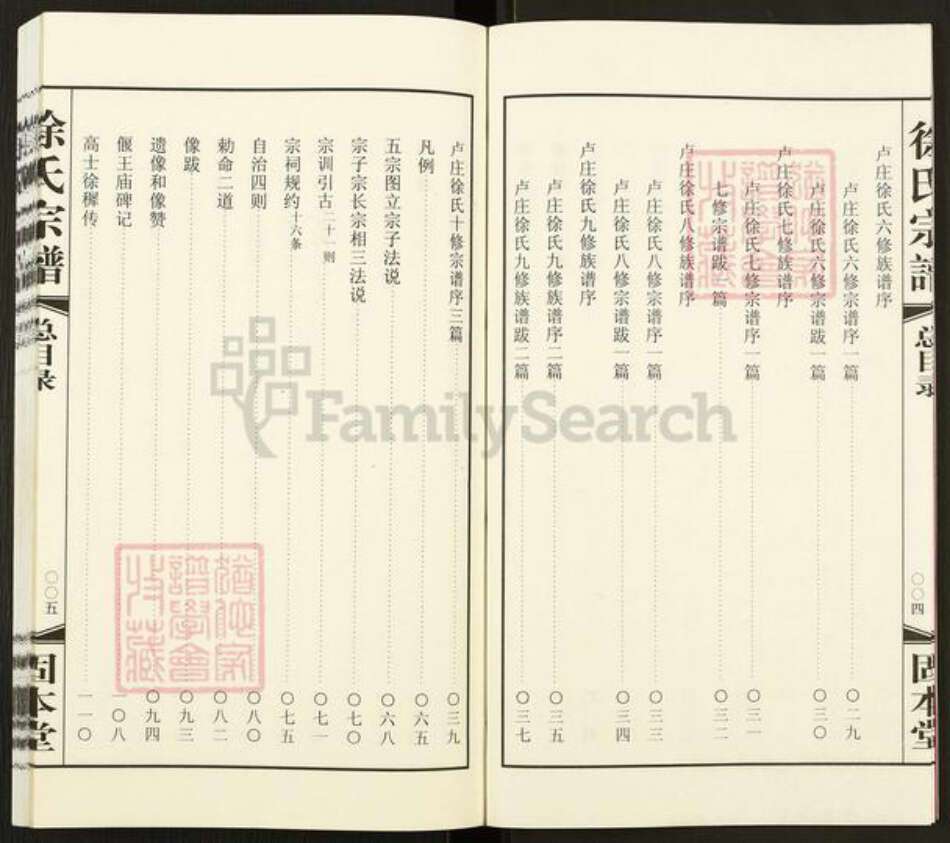 徐氏宗谱
总目录
〇〇四
固本堂
卢庄徐氏六修族谱序
卢庄徐氏六修宗谱序一篇 〇二九
卢庄徐氏六修宗谱跋一篇 〇三〇
卢庄徐氏七修族谱序
卢庄徐氏七修宗谱序一篇 〇三一
七修宗谱跋一篇 〇三二
卢庄徐氏八修族谱序
卢庄徐氏八修宗谱序一篇 〇三三
卢庄徐氏八修宗谱跋一篇 〇三四
卢庄徐氏九修族谱序
卢庄徐氏九修族谱序二篇 〇三五
卢庄徐氏九修族谱跋二篇 〇三七
卢庄徐氏十修宗谱序三篇 〇三九
凡例 〇六五
五宗图立宗子法说 〇六八
宗子宗长宗相三法说 〇七〇
宗训引古二十一则 〇七一
宗祠规约十六条 〇七五
自治四则 〇八〇
勅命二道 〇八二
像跋 〇九三
遗像和像赞 〇九四
偃王庙碑记 一〇八
高士徐穉传 一一〇
徐氏宗谱
总目录
〇〇五
固本堂
FamilySearch